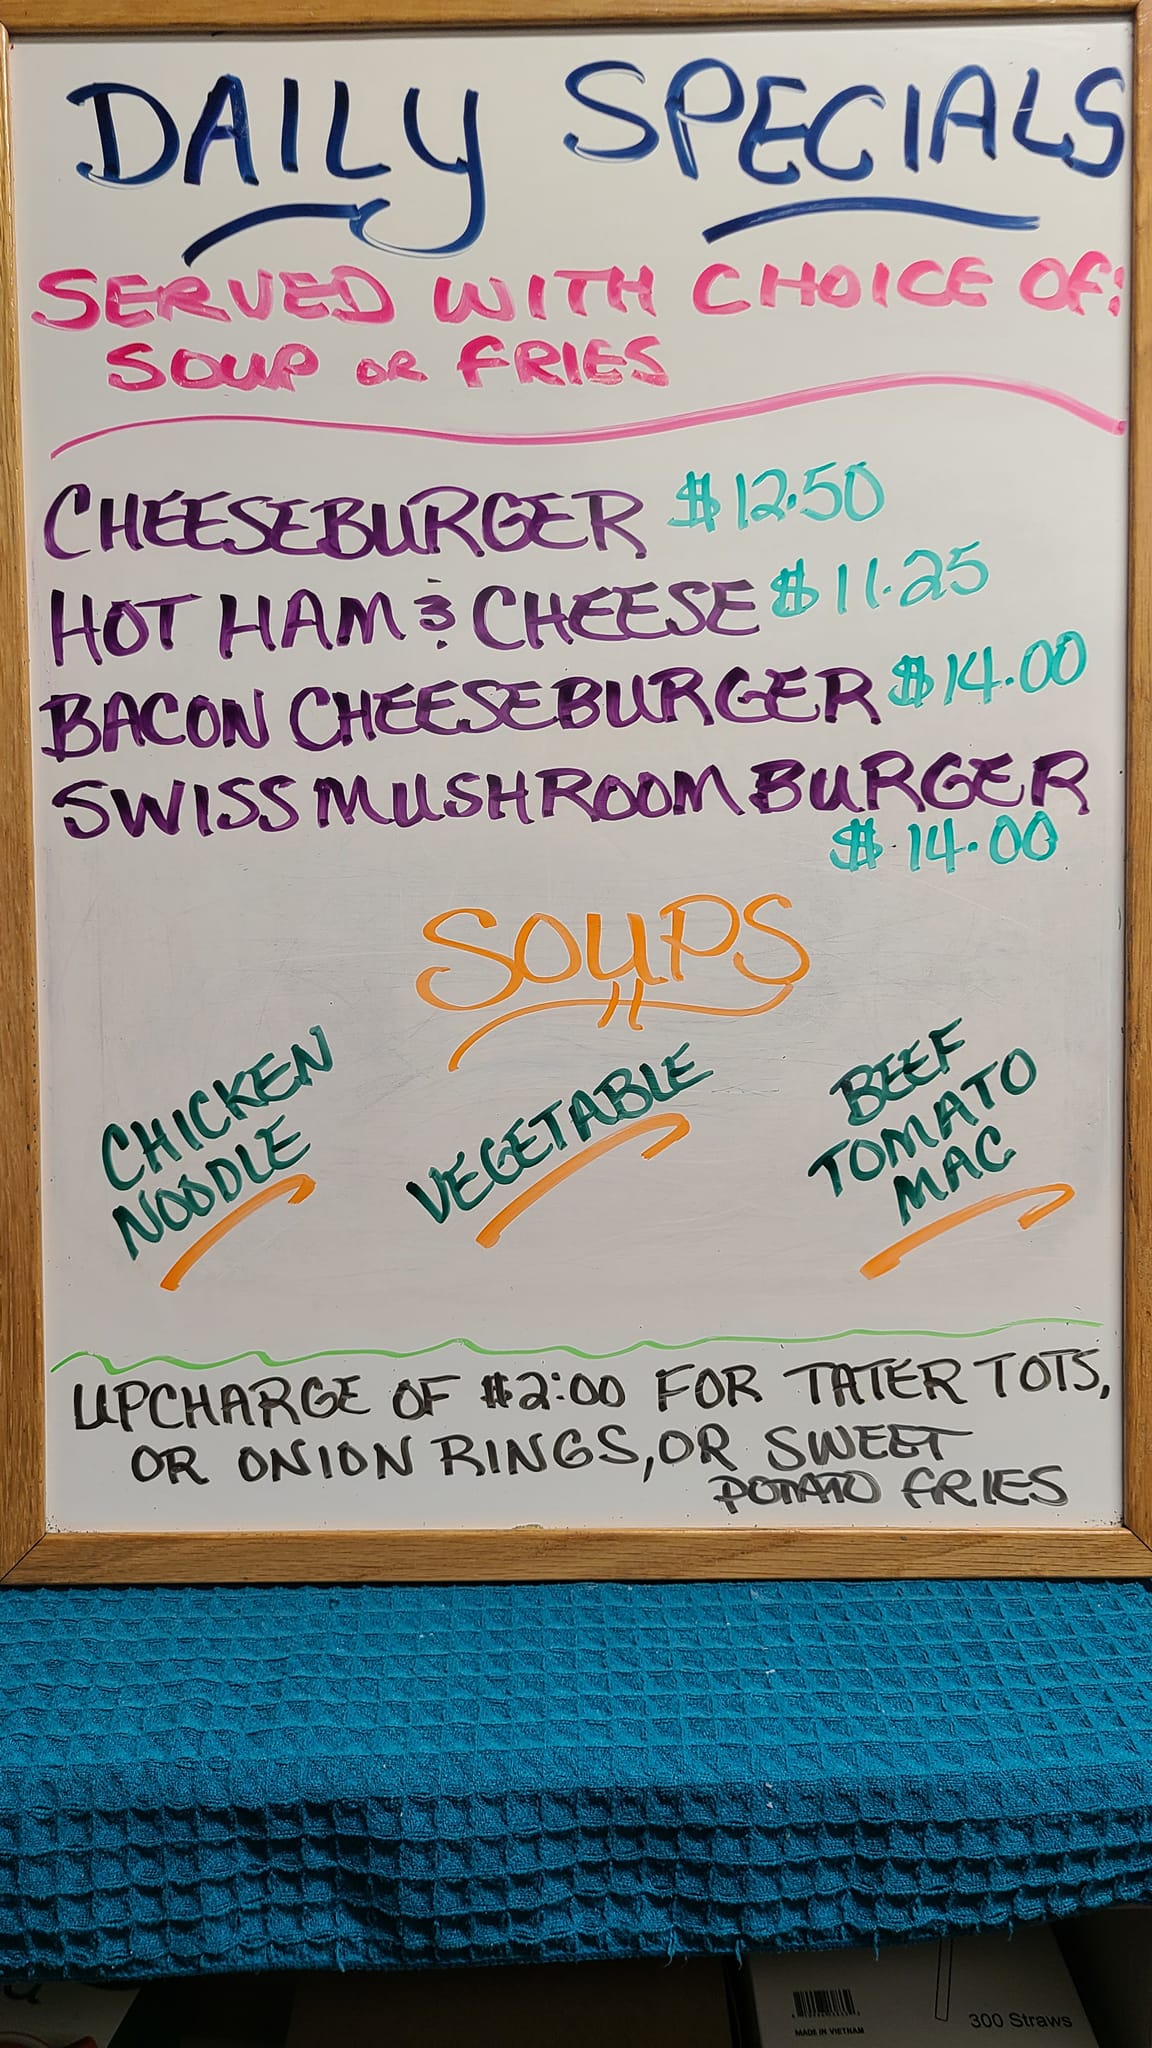 DAILY SPECIALS
SERVED WITH CHOICE OF:
SOUP OR FRIES
CHEESEBURGER $12.50
HOT HAM & CHEESE $11.25
BACON CHEESEBURGER $14.00
SWISS MUSHROOM BURGER
$14.00
SOUPS
CHICKEN
NOODLE
VEGETABLE
BEEF
TOMATO
MAC
UPCHARGE OF $2:00 FOR TATER TOTS,
OR ONION RINGS, OR SWEET
POTATO FRIES
MADE IN VIETNAM
300 Straws